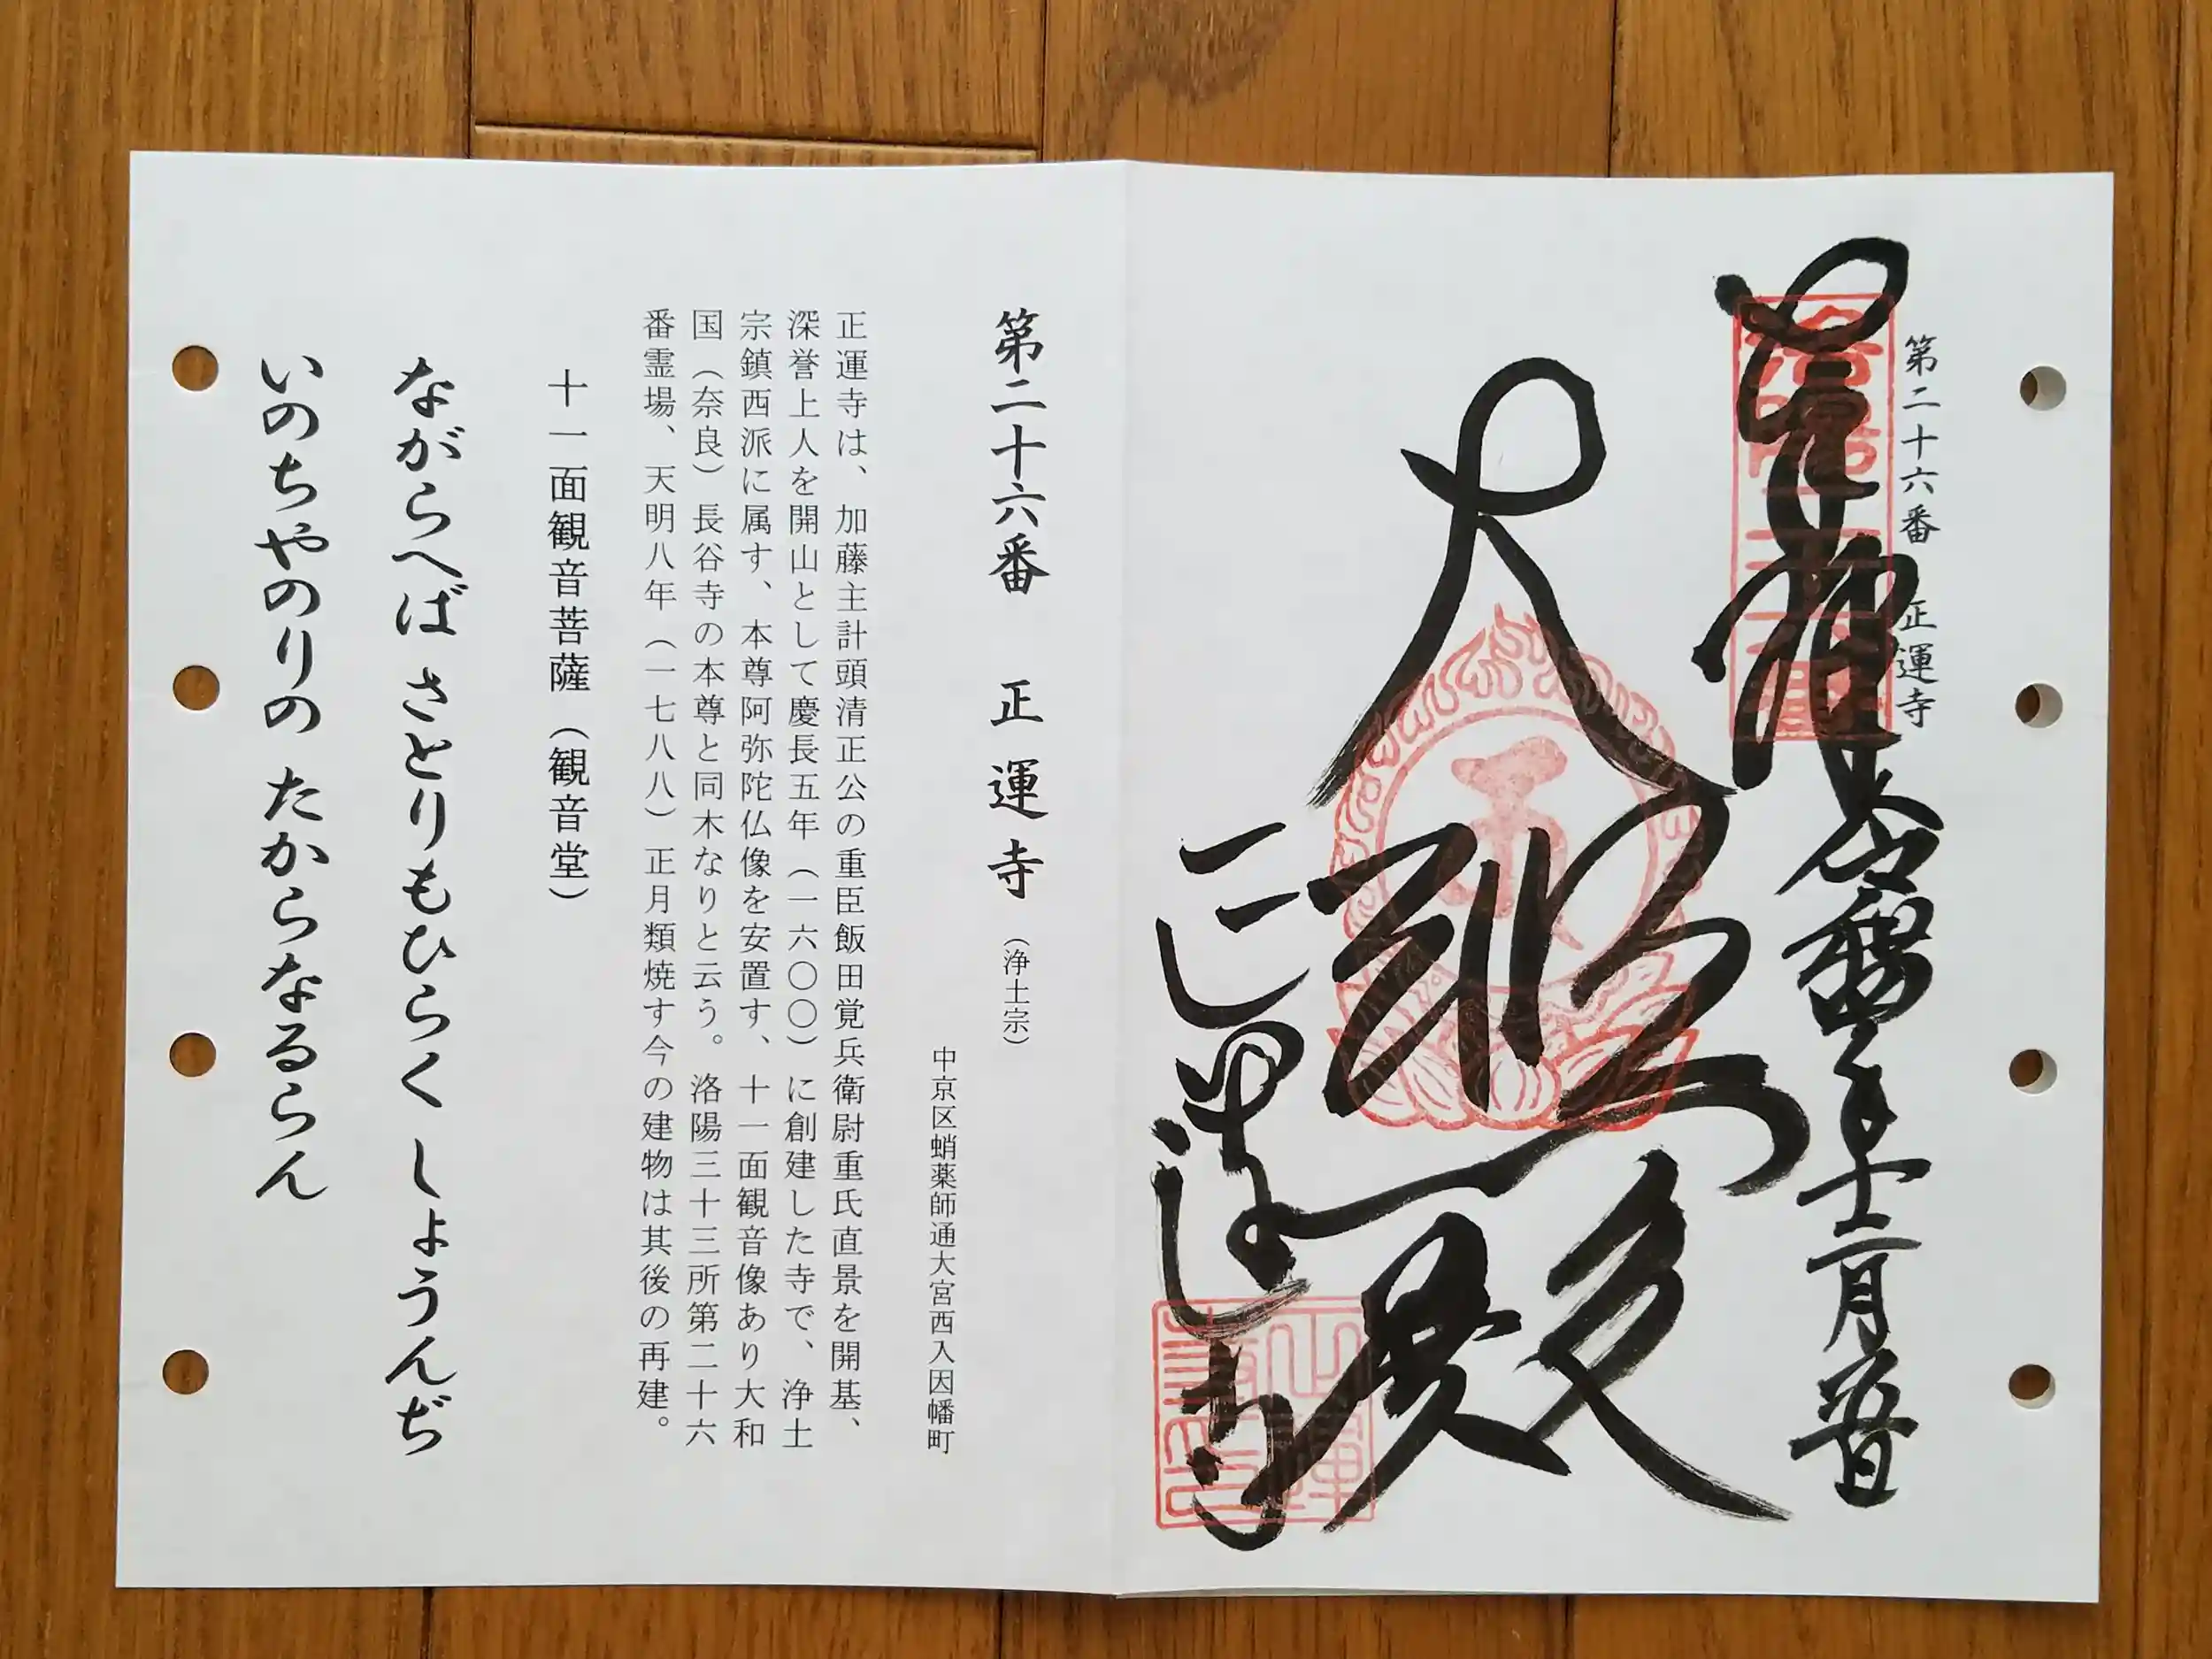 第二十六番 正運寺
奉拝
大悲殿
正運寺
第二十六番 正運寺 （浄土宗）
中京区蛸薬師通大宮西入因幡町
正運寺は、加藤主計頭清正公の重臣飯田覚兵衛尉重氏直景を開基、
深誉上人を開山として慶長五年（一六〇〇）に創建した寺で、浄土
宗鎮西派に属す、本尊阿弥陀仏像を安置す、十一面観音像あり大和
国（奈良）長谷寺の本尊と同木なりと云う。洛陽三十三所第二十六
番霊場、天明八年（一七八八）正月類焼す今の建物は其後の再建。
十一面観音菩薩（観音堂）
ながらへば さとりもひらく しょうんぢ
いのちやのりの たからなるらん